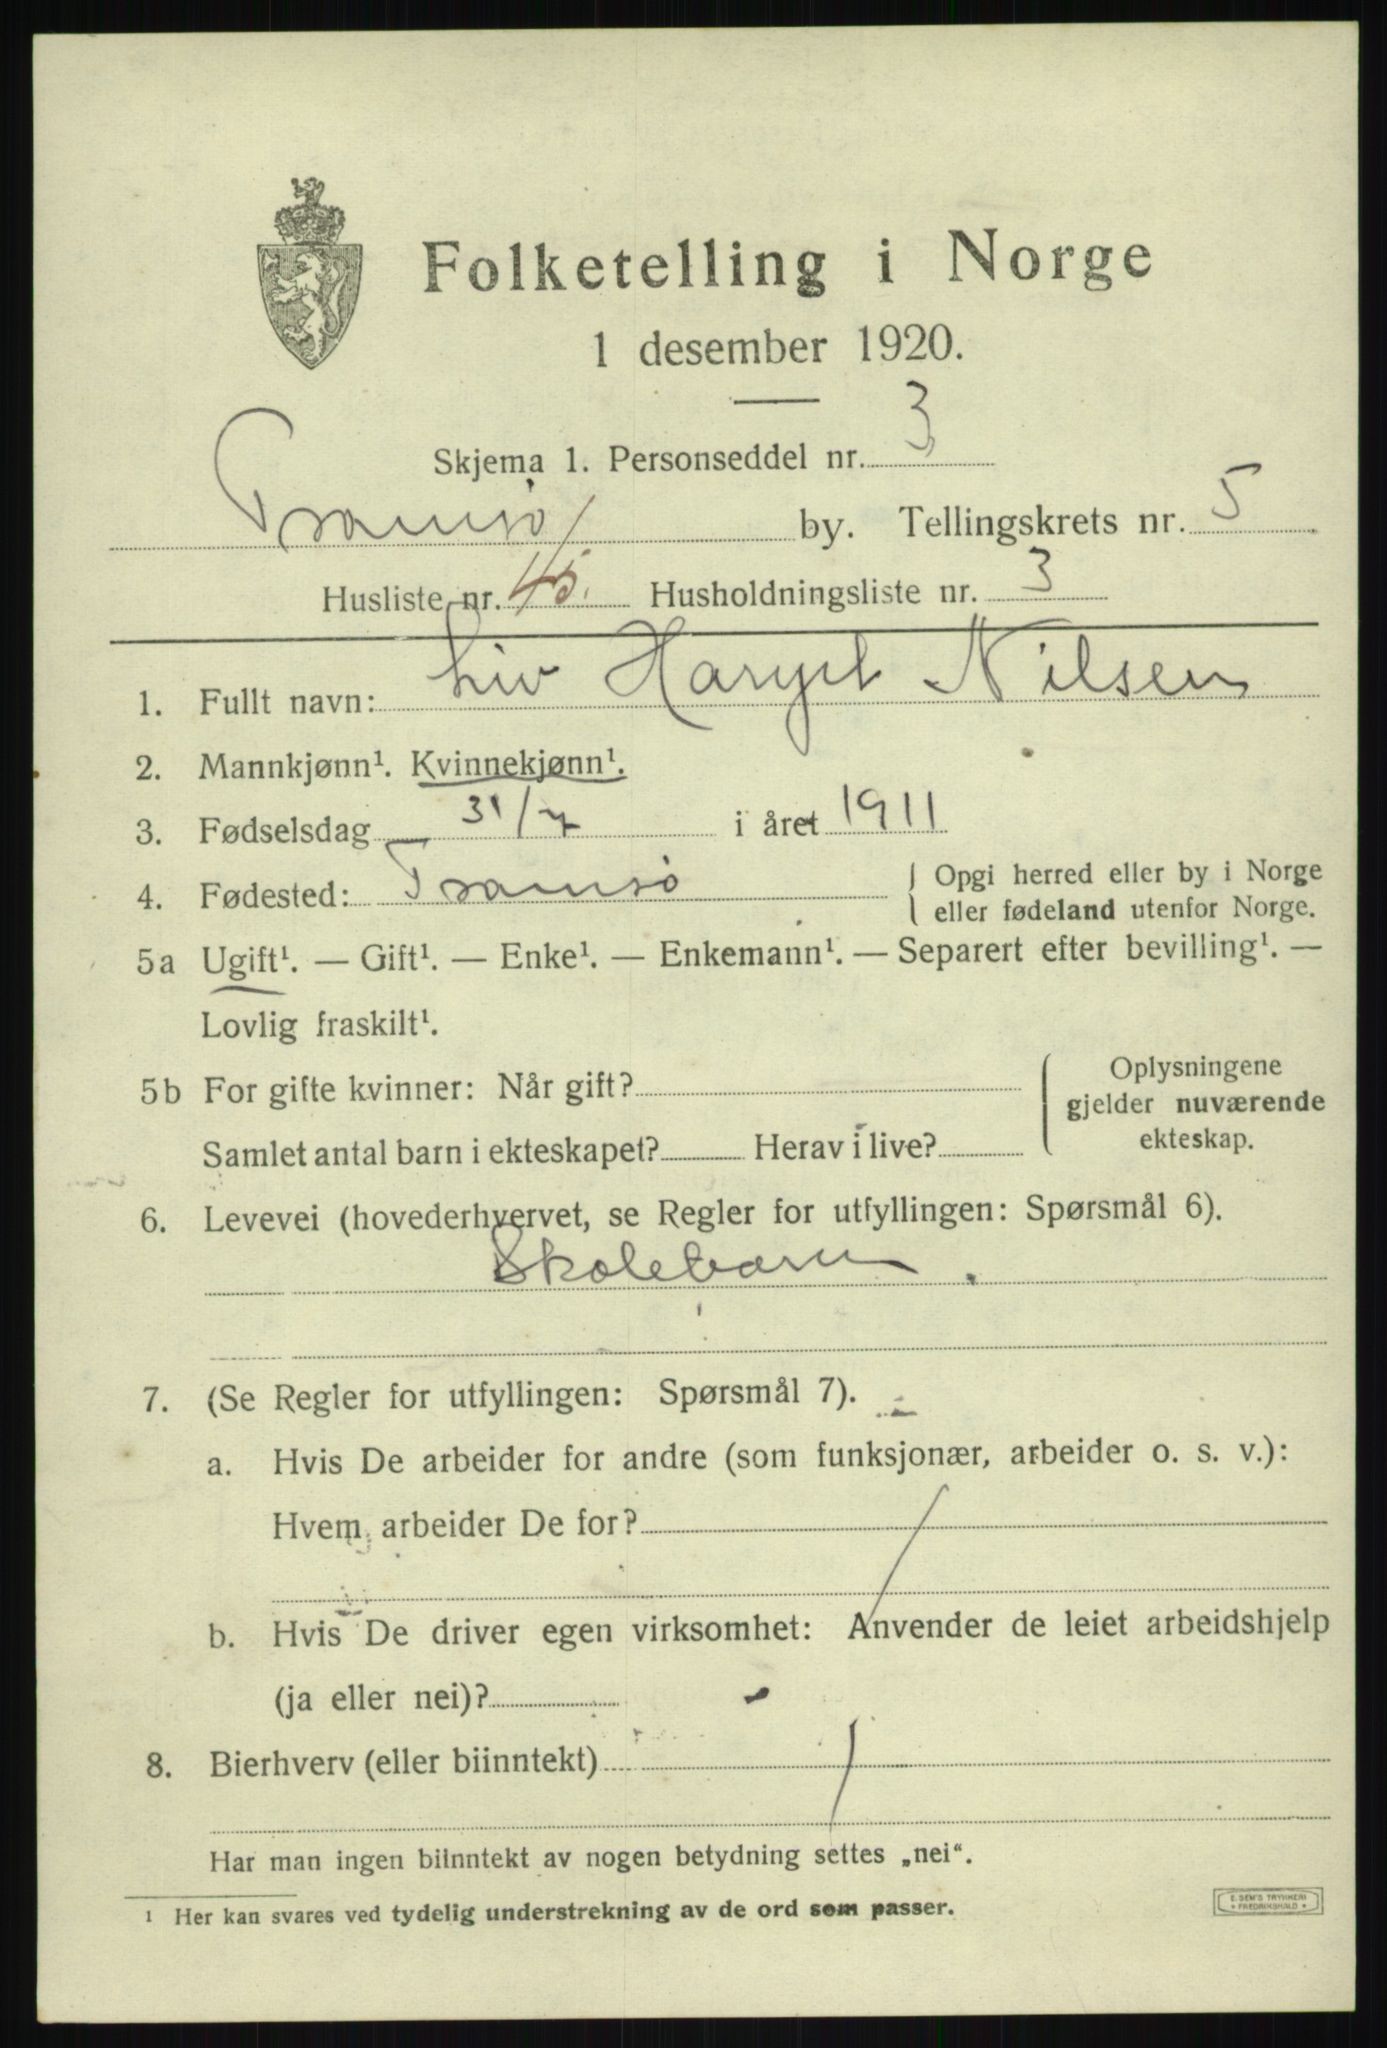 Folketelling i Norge
1 desember 1920.
Skjema 1. Personseddel nr. 3
Tromsø by. Tellingskrets nr. 5
Husliste nr. 45. Husholdningsliste nr. 3
1. Fullt navn: Liv Nilsen
2. Mannkjønn¹. Kvinnekjønn¹.
3. Fødselsdag 31/7 i året 1911
4. Fødested: Tromsø { Opgi herred eller by i Norge
eller fødeland utenfor Norge.
5a Ugift¹. — Gift¹. — Enke¹. — Enkemann¹. — Separert efter bevilling¹. —
Lovlig fraskilt¹.
5b For gifte kvinner: Når gift?
Samlet antal barn i ekteskapet? Herav i live?
Oplysningene
gjelder nuværende
ekteskap.
6. Levevei (hovederhvervet, se Regler for utfyllingen: Spørsmål 6).
Skolebarn.
7. (Se Regler for utfyllingen: Spørsmål 7).
a. Hvis De arbeider for andre (som funksjonær, arbeider o. s. v.):
Hvem arbeider De for? /
b. Hvis De driver egen virksomhet: Anvender de leiet arbeidshjelp
(ja eller nei)? -
8. Bierhverv (eller biinntekt) /
Har man ingen biinntekt av nogen betydning settes „nei“.
¹ Her kan svares ved tydelig understrekning av de ord som passer.
E. SEM'S TRYKKERI
• FREDRIKSHALD •